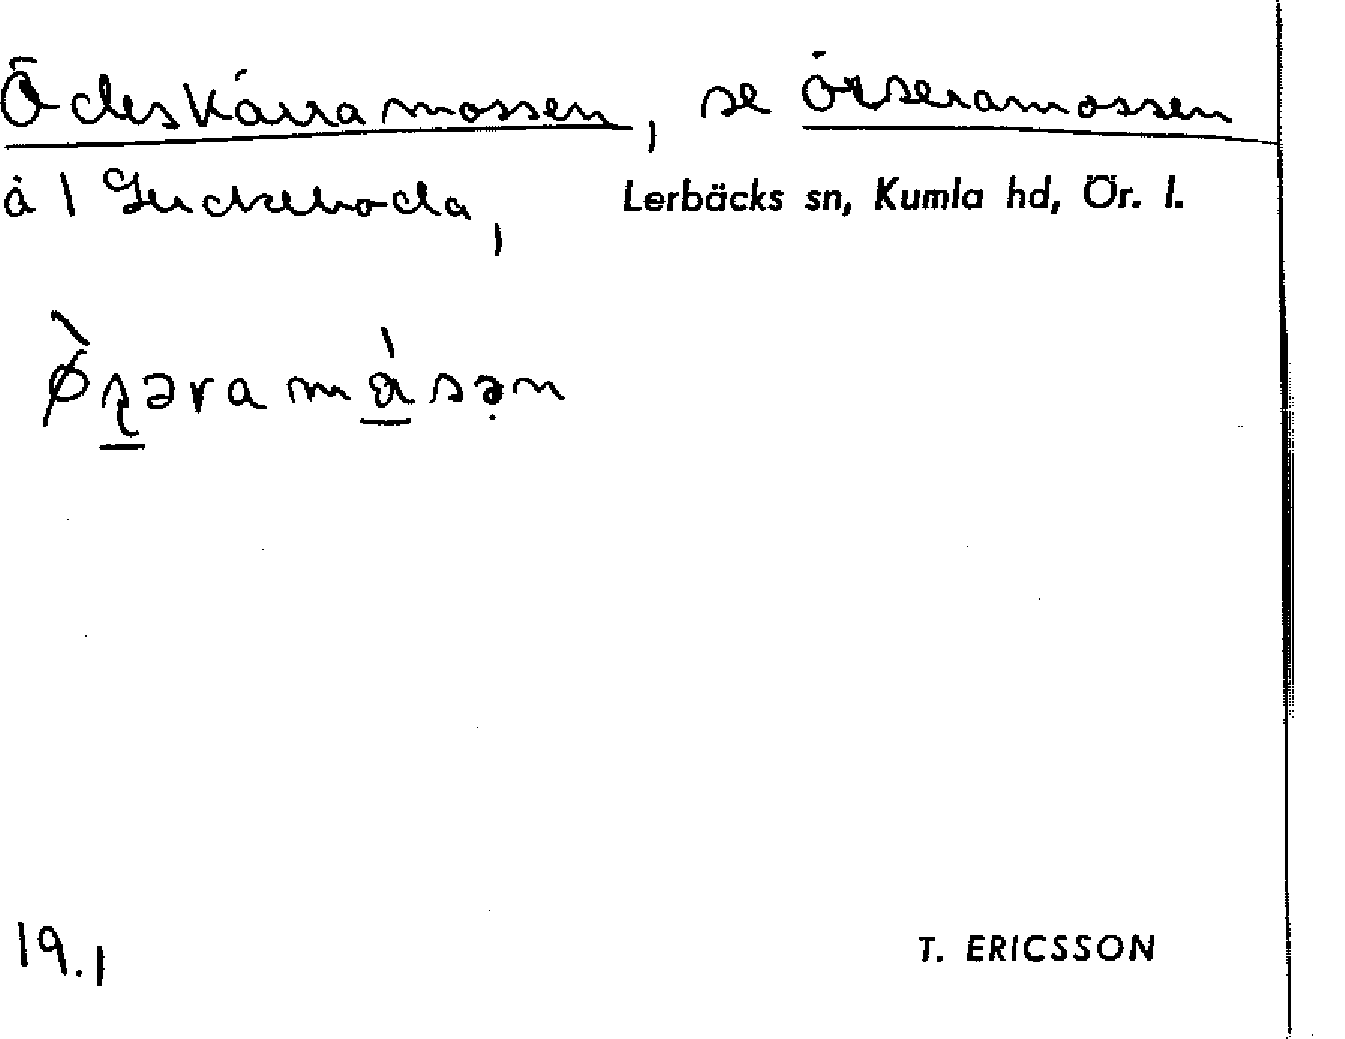 Ödeskärramossen, se örseramossen
å 1 Luckeboda, Lerbäcks sn, Kumla hd, Ör. l.
19.1
T. ERICSSON